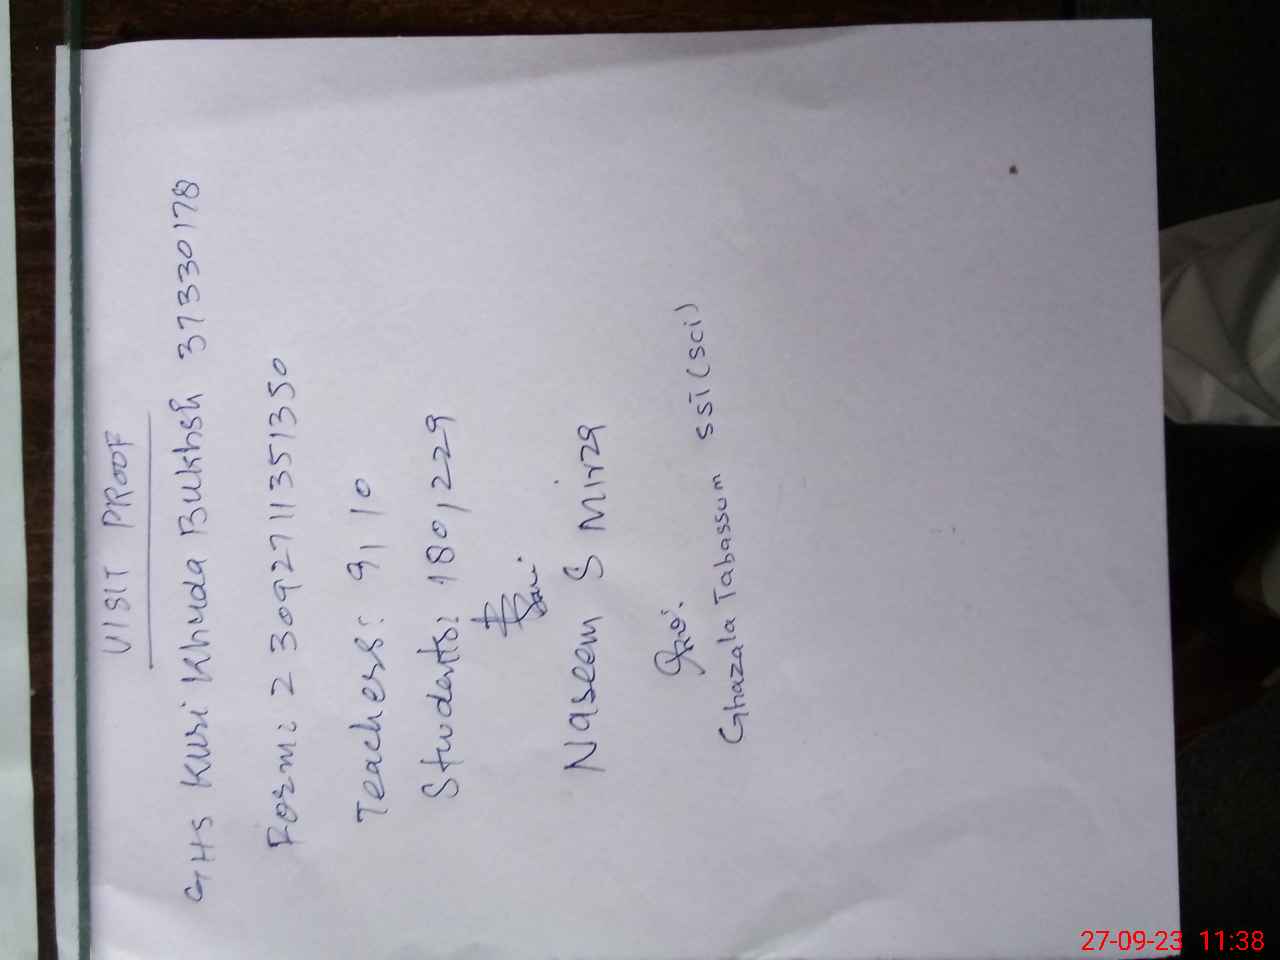 VISIT PROOF
GHS Kuri Khuda Bukhsh 37330178
Form: 230927 11351350
Teachers: 9, 10
Students: 180, 229
Naseem S Mirza
Ghazala Tabassum SSI (Sci)
27-09-23 11:38